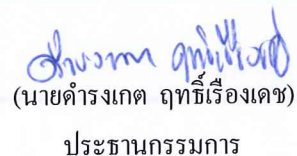 (นายดำรงเกต ฤทธิ์เรืองเดช)
ประธานกรรมการ